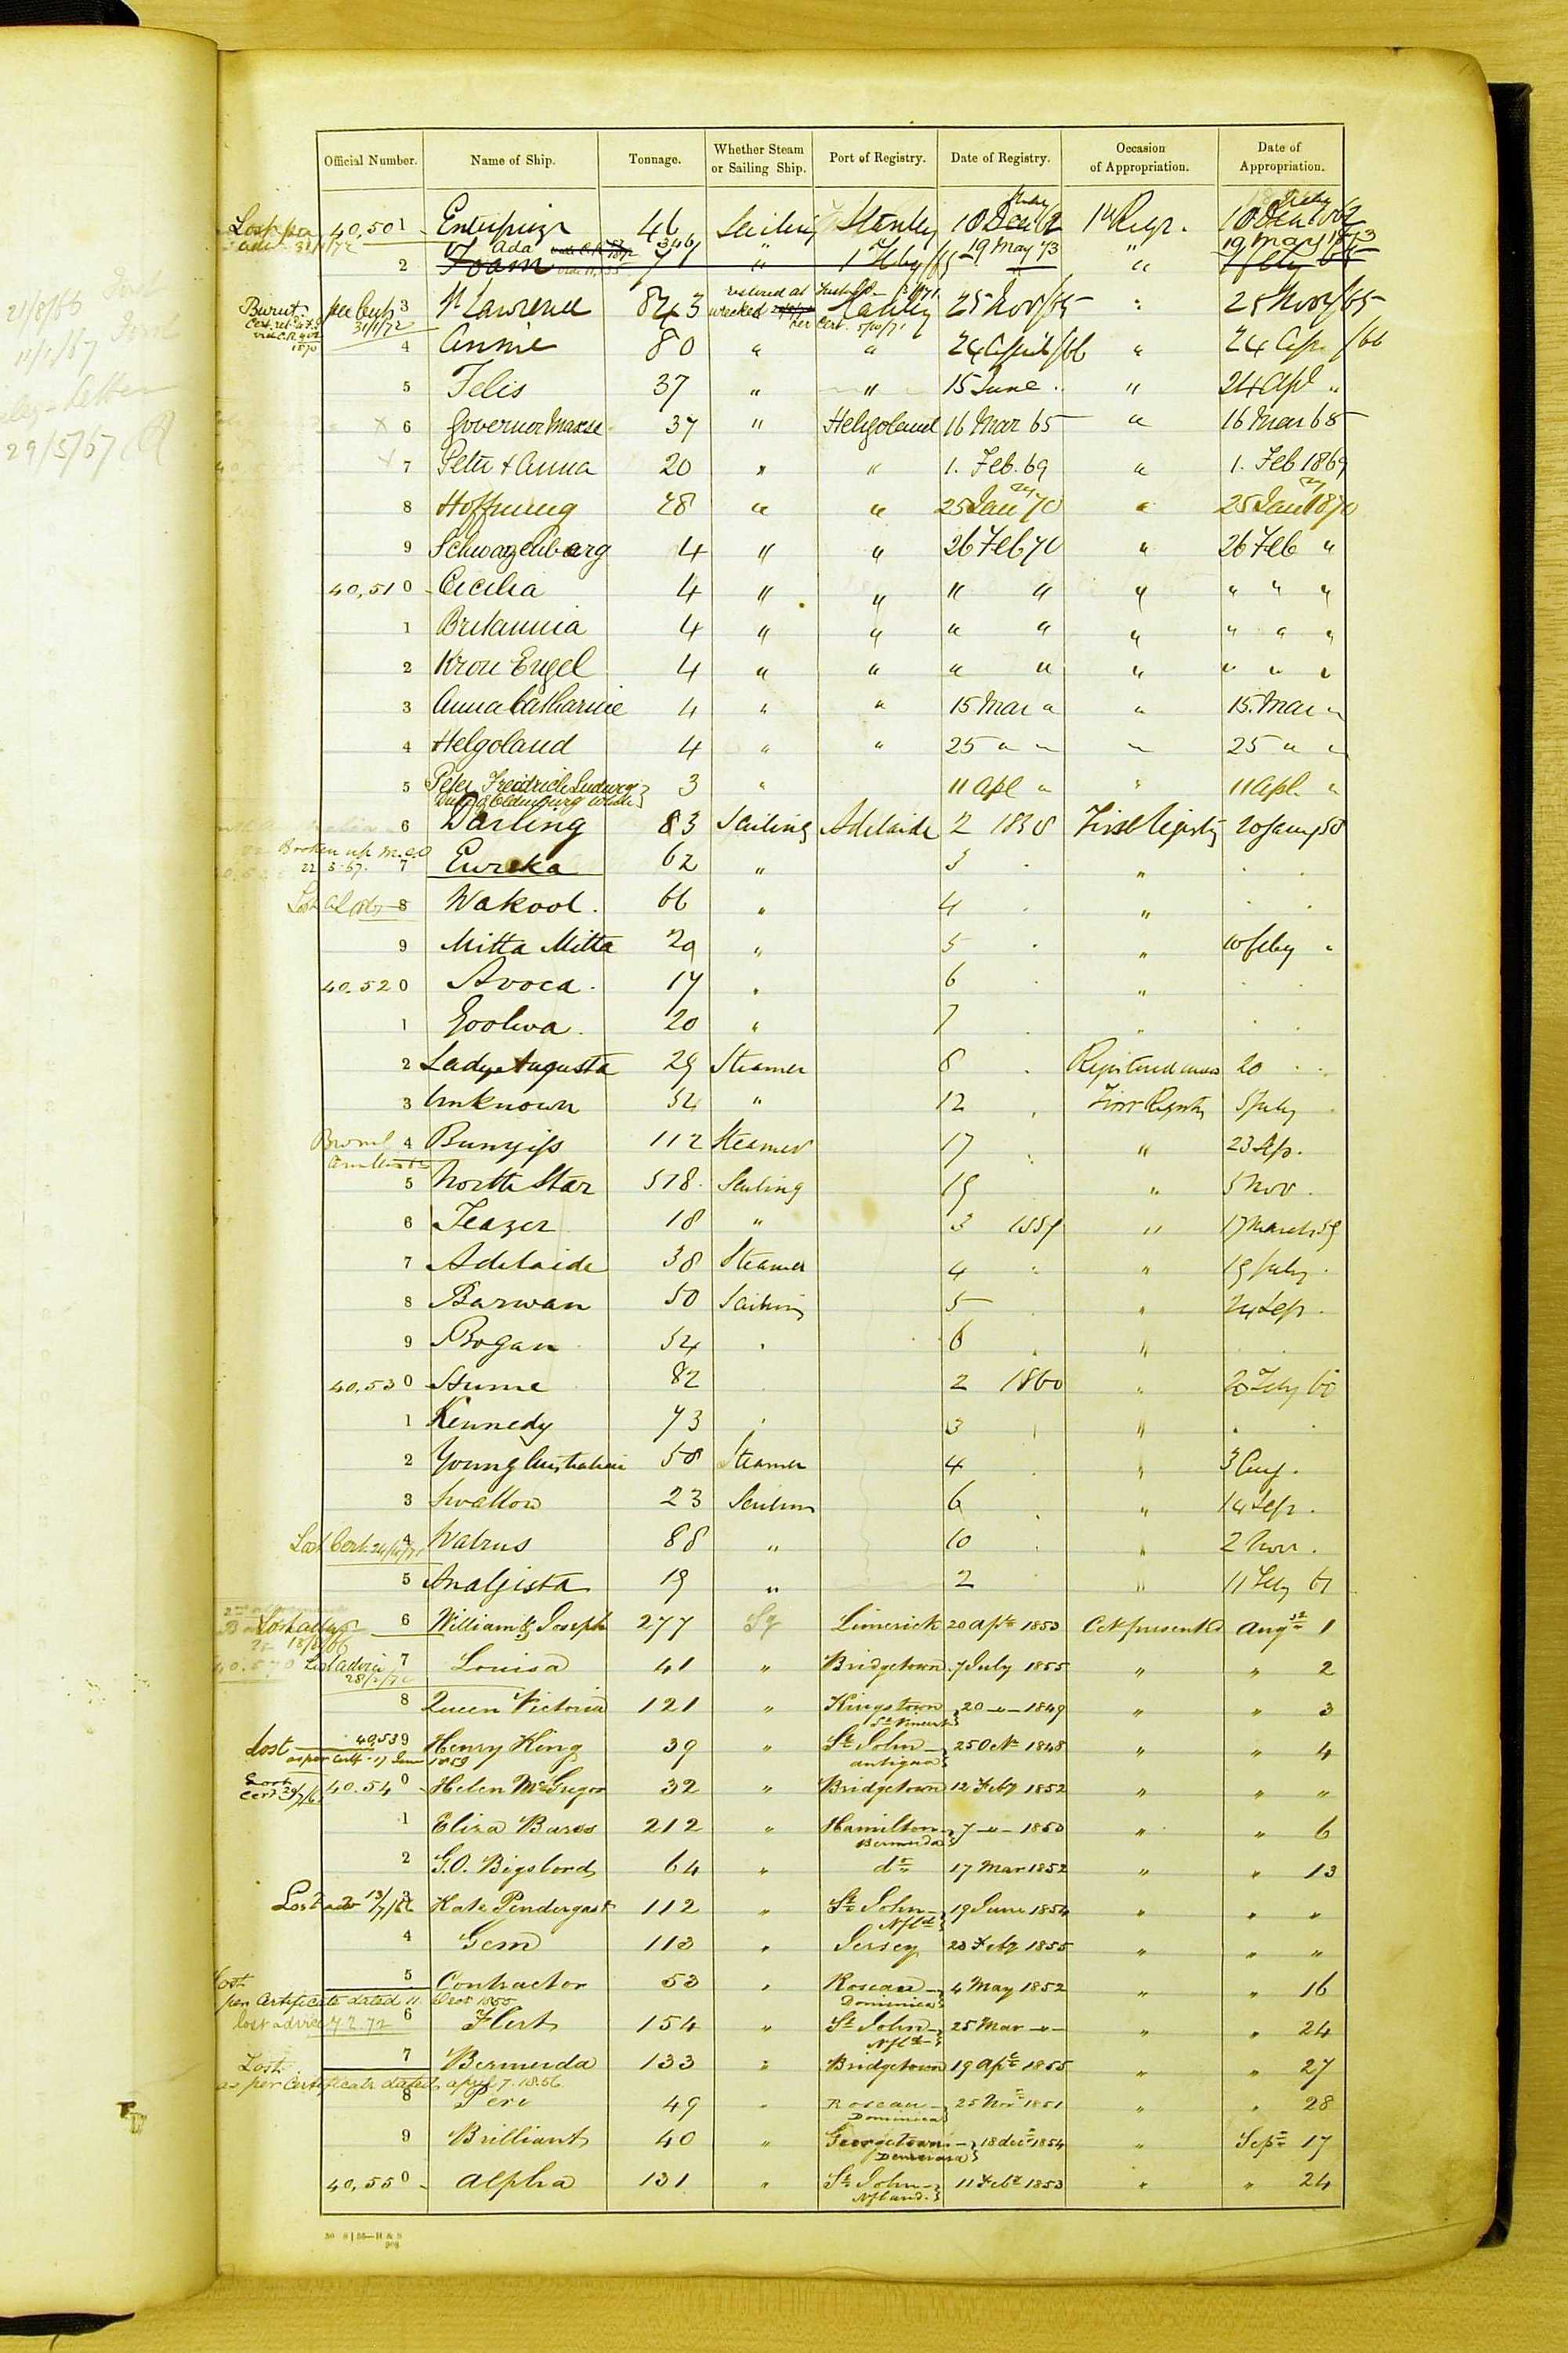 Official Number. Name of Ship. Tonnage. Whether Steam or Sailing Ship. Port of Registry. Date of Registry. Occasion of Appropriation. Date of Appropriation.
40,501 Enterprize 46 Sailing Stanley 10 Dec 1st Regr.
Ada 346 " 19 May 73 " 19 May 1873
2 Foam 1 Feby
3 St Lawrence 843 wrecked Stanley 25 Nov/65 " 25 Nov/65
4 Annie 80 " " 24 April/66 " 24 Ap. /66
5 Felis 37 " " 15 June " 24 Apl "
6 Governor Maxse 37 " Heligoland 16 Mar 65 " 16 Mar 65
7 Peter & Anna 20 " " 1. Feb. 69 " 1. Feb 1869
8 Hoffnung 28 " " 25 Jany 70 " 25 Jany 1870
9 Schwazenberg 4 " " 26 Feb 70 " 26 Feb "
40,510 Cecilia 4 " " " " " " " "
1 Britannia 4 " " " " " " " "
2 Kron Engel 4 " " " " " " " "
3 Anna Catharine 4 " " 15 Mar " " 15. Mar "
4 Helgoland 4 " " 25 " " " 25 " "
5 Peter Freidrich Ludwig 3 " 11 Apl " " 11 Apl. "
6 Darling 83 Sailing Adelaide 2 1858 First Registry 20 Jany 58
Broken up
22.5.67. 7 Eureka 62 " 3 . " . .
Lost 8 Wakool. 66 " 4 . " . .
9 Mitta Mitta 29 " 5 . " 10 Feby "
40.520 Avoca. 17 " 6 . " . .
1 Goolwa. 20 " 7 . " . .
2 Lady Augusta 29 Steamer 8 . Registered anew 20 . .
3 Unknown 52 " 12 . First Registry 5 July .
4 Bunyip 112 Steamer 17 . " 23 Ap.
5 North Star 518. Sailing 19 " 5 Nov.
6 Teazer 18 " 3 1859 " 17 March 59
7 Adelaide 38 Steamer 4 . " 19 July .
8 Barwan 50 Sailing 5 . " 24 Sep.
9 Bogan 54 " 6 . " . .
40,530 Hume 82 2 1860 " 20 Feby 60
1 Kennedy 73 . 3 . " . .
2 Young Australian 58 Steamer 4 . " 3 Aug.
3 Swallow 23 Sailing 6 . " 14 Sep.
Lost Cert. 4 Walrus 88 " 10 . " 2 Nov.
5 Analgista 19 " 2 " 11 Feby 61
6 William & Joseph 277 Sg Limerick 20 Apl 1853 Cct presented Augst 1
7 Louisa 41 " Bridgetown 7 July 1855 " " 2
8 Queen Victoria 121 " Kingstown St Vincent 20 " 1849 " " 3
Lost 40,539 Henry King 39 " St John Antigua 25 Octr 1848 " " 4
as per Certf. 17 June 1859
40.540 Helen McGregor 32 " Bridgetown 12 Feby 1852 " " "
1 Eliza Barss 212 " Hamilton Bermuda 7 " 1850 " " 6
2 G.O. Bigelord 64 " do 17 Mar 1852 " " 13
Lost 3 Kate Pendergast 112 " St John Nfld 19 June 1854 " " "
4 Gem 113 " Jersey 23 Feby 1855 " " "
Lost 5 Contractor 53 " Roseau Dominica 4 May 1852 " " 16
per Certificate dated 11 Decr 1855
lost advice 7.2.72 6 Flirt 154 " St John Nfld 25 Mar " " " 24
Lost 7 Bermuda 133 " Bridgetown 19 Apl 1855 " " 27
as per Certificate dated April 7. 1856.
8 Peri 49 " Roseau Dominica 25 Nov 1851 " " 28
9 Brilliant 40 " Georgetown Demerara 18 Decr 1854 " Sepr 17
40,550 Alpha 131 " St John Nfland. 11 Feby 1853 " " 24